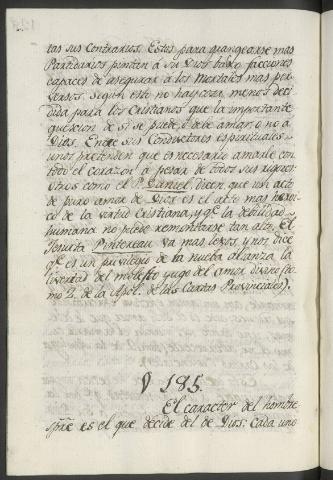 tas sus contrarios. Estos para grangearse mas
Partidarios pintan á su Dios bajo facciones
capaces de asegurar á los mortales mas per
versos. Segun esto no hay cosa menos deci
dida para los Cristianos que la importante
question de si se puede ó debe amar, o no á
Dios. Entre sus Conductores espirituales
unos pretenden que es necesario amarle con
todo el corazon á pesar de todos sus rigores
otros como el P. Daniel, dicen que un acto
de puro amor de Dios es el acto mas heroi
co de la virtud Cristiana, y qe la debilidad
humana no puede remontarse tan alto. El
Jesuita Pintereau va mas lexos, y nos dice
qe es un privilegio de la nueva alianza la
libertad del molesto yugo del amor divino (to
mo 2. de la Apol. de las Cartas Provinciales).
§ 185.
El caracter del hombre
spre es el que decide del de Dios: Cada uno